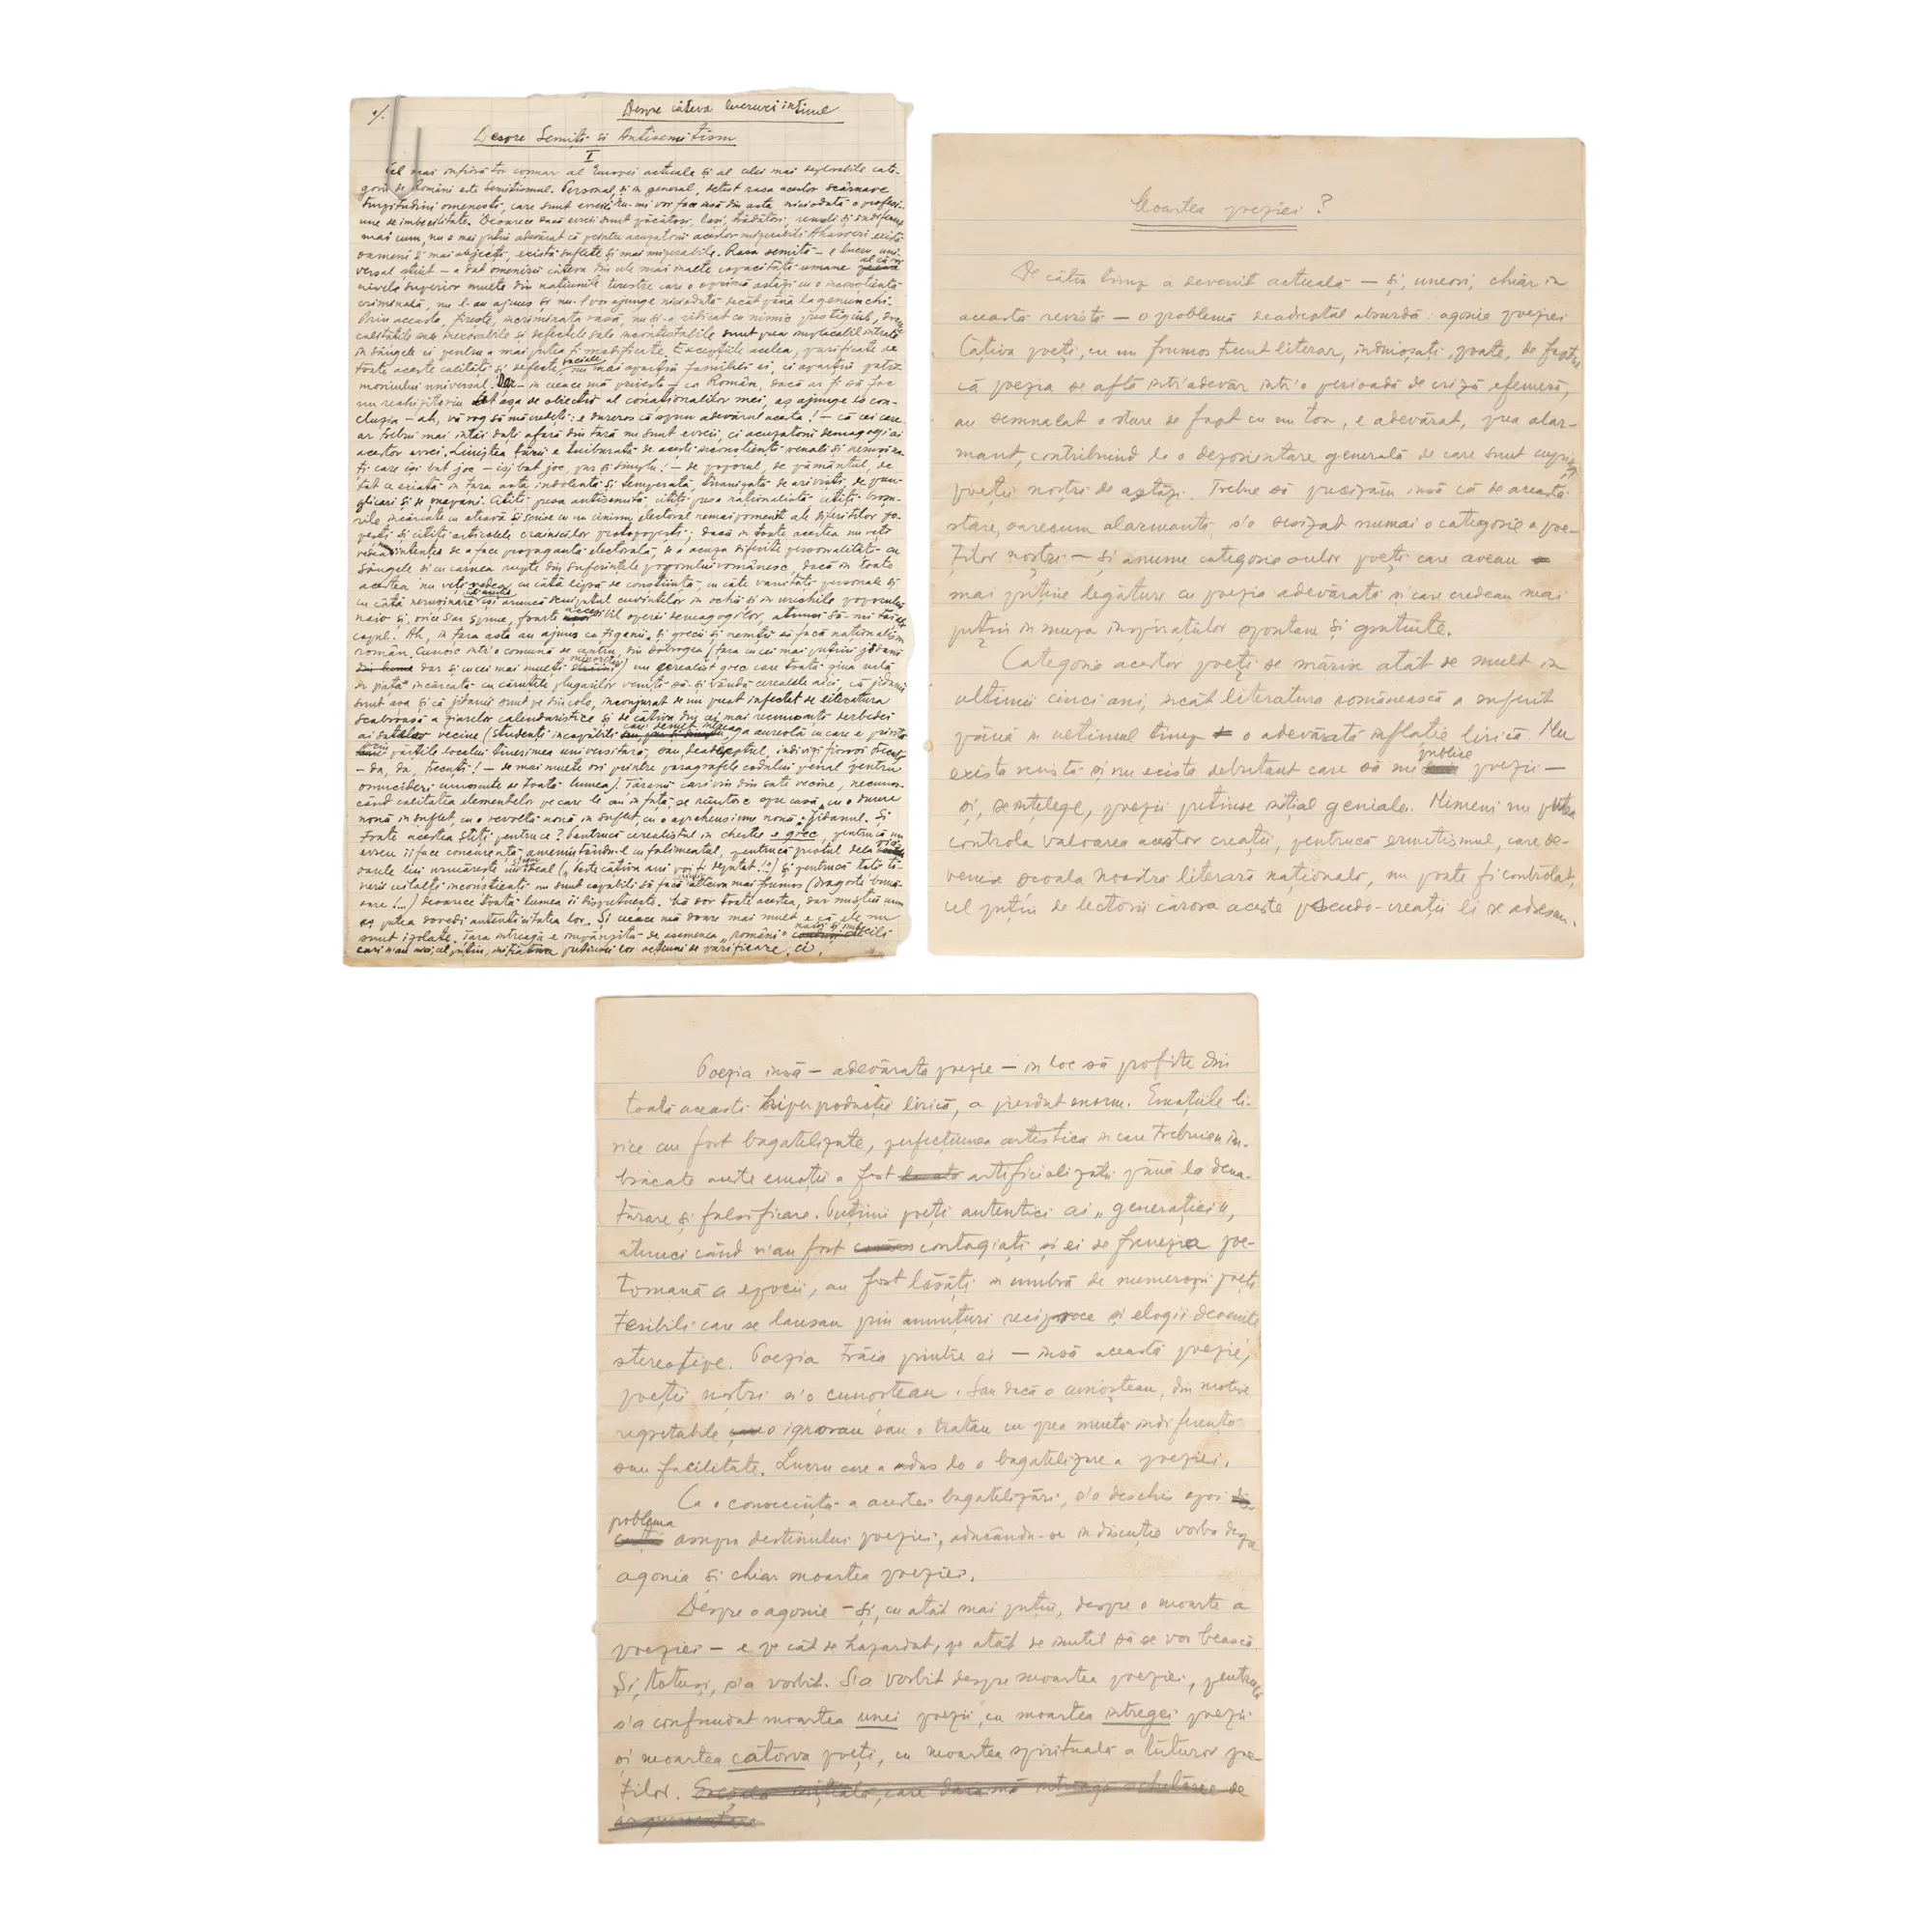 1/.
Despre câteva lucruri intime
Despre Semiți și Antisemitism
I
Cel mai înfiorător coșmar al Europei actuale și al celei mai deplorabile cate-
gorii de Români este Semitismul. Personal, și în general, detest rasa acestor scârnave
turpitudini omenești, care sunt evreii. Nu-mi voi face însă din asta niciodată o profesi-
une de imbecilitate. Deoarece dacă evreii sunt păcătoși, lași, trădători,
mai cum, nu e mai puțin adevărat că printre acuzatorii acestor mizerabili Ahasveri există
oameni și mai abjecți, există suflete și mai mizerabile. Rasa semită – e lucru uni-
versal știut – a dat omenirii câteva din cele mai înalte capacități umane al căror
nivel superior multe din națiunile terestre care o oprimă astăzi cu o inconștiență
criminală, nu l-au ajuns și nu-l vor ajunge niciodată decât până la genunchi.
Prin aceasta, firește, incriminata rasă, nu și-a ridicat cu nimic prestigiul,
calitățile sale și defectele sale incontestabile sunt prea inexplicabil intrate
în sângele ei pentru a mai putea fi modificate. Excepțiile acelea, purificate de
toate aceste calități și defecte sociale, nu mai aparțin familiei ei, ci aparțin patri-
moniului universal. Dar – în ceeace mă privește – ca Român, dacă ar fi să fac
un rechizitoriu cât așa de obiectiv al conaționalilor mei, aș ajunge la con-
cluzia – ah, vă rog să mă credeți: e dureros că spun adevărul acesta! – că cei care
ar trebui mai întâi dați afară din țară nu sunt evreii, ci acuzatorii demagogi ai
acestor evrei. Liniștea țării e tulburată de acești inconștienți venali și nerușina-
ți care își bat joc – își bat joc, pur și simplu! – de poporul, de pământul, de
tot ce există în țara asta indolentă și temperată, tiranizată de ariviști, de pun-
gași și de . Citiți presa antisemită, citiți presa naționalistă, citiți broșu-
rile încărcate cu otravă și scrise cu un cinism electoral nemaipomenit ale diferitelor
și citiți articolele crainicilor ; dacă în toate acestea nu veți
vedea intenția de a face propagandă electorală, de a acuza diferite personalități cu
sângele și cu carnea ruptă din suferințele poporului românesc, dacă în toate
acestea nu veți vedea cu câtă lipsă de conștiință, cu câte vanități personale și
cu câtă nerușinare își aruncă scuipatul cuvintelor în ochii și în urechile poporului
naiv și, orice s'ar spune, foarte accesibil operei demagogilor, atunci să-mi tăiați
capul. Ah, în țara asta au ajuns ca țiganii și grecii și nemții să facă naționalism
român. Cunosc într'o comună de centru, din Dobrogea (țara cu cei mai puțini jidani
dar și cu cei mai mulți minoritari) un cerealist grec care toată ziua urlă
în piața încărcată cu căruțele plugarilor veniți să-și vândă cerealele aici, că jidanii
sunt așa și că jidanii sunt pe dincolo, înconjurat de un preot infectat de literatura
scabroasă a ziarelor calendaristice și de câțiva din cei mai recunoscuți derbedei
ai satelor vecine (studenți incapabili
părțile locului tinerimea universitară, sau , indivizi fioroși trecuți
– da, da, trecuți! – de mai multe ori printre paragrafele codului penal pentru
omucideri cunoscute de toată lumea). Țăranii cari vin din sate vecine, necunos-
când calitatea elementelor pe care le au în față, se reîntorc spre casă, cu o durere
nouă în suflet, cu o revoltă nouă în suflet, cu o aprehensiune nouă: Jidanul. Și
toate acestea știți pentruce? Pentrucă cerealistul în chestie e grec, pentrucă un
evreu îi face concurență amenințându-l cu falimentul, pentrucă preotul
oasele lui urmărește un ideal („Peste câțiva ani voi fi deputat!..”) și pentrucă toți ti-
nerii ceilalți inconștienți nu sunt capabili să facă altceva mai frumos (dragoste bună-
oare!...) deoarece toată lumea îi disprețuește. Mă dor toate acestea, dar nu știu cum
aș putea dovedi autenticitatea lor. Și ceeace mă doare mai mult e că ele nu
sunt izolate. Țara întreagă e împânzită de asemenea „români” naivi și imbecili
cari n'au nici, cel puțin, inițiativa pretinsei lor acțiuni de purificare, ci,
Moartea poeziei?
De câtăva timp a devenit actuală – și, uneori, chiar în
această revistă – o problemă deadreptul absurdă: agonia poeziei.
Câțiva poeți, cu un frumos trecut literar, înduioșați, poate, de faptul
că poezia se află într'adevăr într'o perioadă de criză efemeră,
au semnalat o stare de fapt cu un ton, e adevărat, prea alar-
mant, contribuind la o dezorientare generală de care sunt cuprinși
poeții noștri de astăzi. Trebue să precizăm însă că de această
stare, oarecum alarmantă, s'a sesizat numai o categorie a poe-
ților noștri – și anume categoria celor poeți care aveau
mai puține legături cu poezia adevărată și care credeau mai
puțin în muza inspirațiilor spontane și gratuite.
Categoria acestor poeți se mărise atât de mult în
ultimii cinci ani, încât literatura românească a suferit
până în ultimul timp o adevărată inflație lirică. Nu
exista revistă și nu exista debutant care să nu publice poezii –
și, seînțelege, poezii pretinse inițial geniale. Nimeni nu putea
controla valoarea acestor creații, pentrucă ermetismul, care de-
venise școala noastră literară națională, nu poate fi controlat,
cel puțin de lectorii cărora aceste pseudo-creații li se adresau.
Poezia însă – adevărata poezie – în loc să profite din
toată această hiperproducție lirică, a pierdut enorm. Emoțiile li-
rice au fost bagatelizate, perfecțiunea artistică în care trebuiau îm-
brăcate aceste emoții a fost artificializată până la dena-
turare și falsificare. Puținii poeți autentici ai „generației”,
atunci când n'au fost contagiați și ei de frenezia poe-
tomană a epocii, au fost lăsați în umbră de numeroșii poeți
teribili care se lansau prin anunțuri reciproce și elogii devenite
stereotipe. Poezia trăia printre ei – însă această poezie,
poeții noștri n'o cunoșteau. Sau dacă o cunoșteau, din motive
regretabile o ignorau sau o tratau cu prea multă indiferență
sau facilitate. Lucru care a adus la o bagatelizare a poeziei.
Ca o consecință a acestei bagatelizări, s'a deschis apoi
problema asupra destinului poeziei, aducându-se în discuție vorba despre
agonia și chiar moartea poeziei.
Despre o agonie – și, cu atât mai puțin, despre o moarte a
poeziei – e pe cât de hazardat, pe atât de inutil să se vorbească.
Și, totuși, s'a vorbit. S'a vorbit despre moartea poeziei, pentrucă
s'a confundat moartea unei poezii, cu moartea întregei poezii
și moartea câtorva poeți, cu moartea spirituală a tuturor poe-
ților.